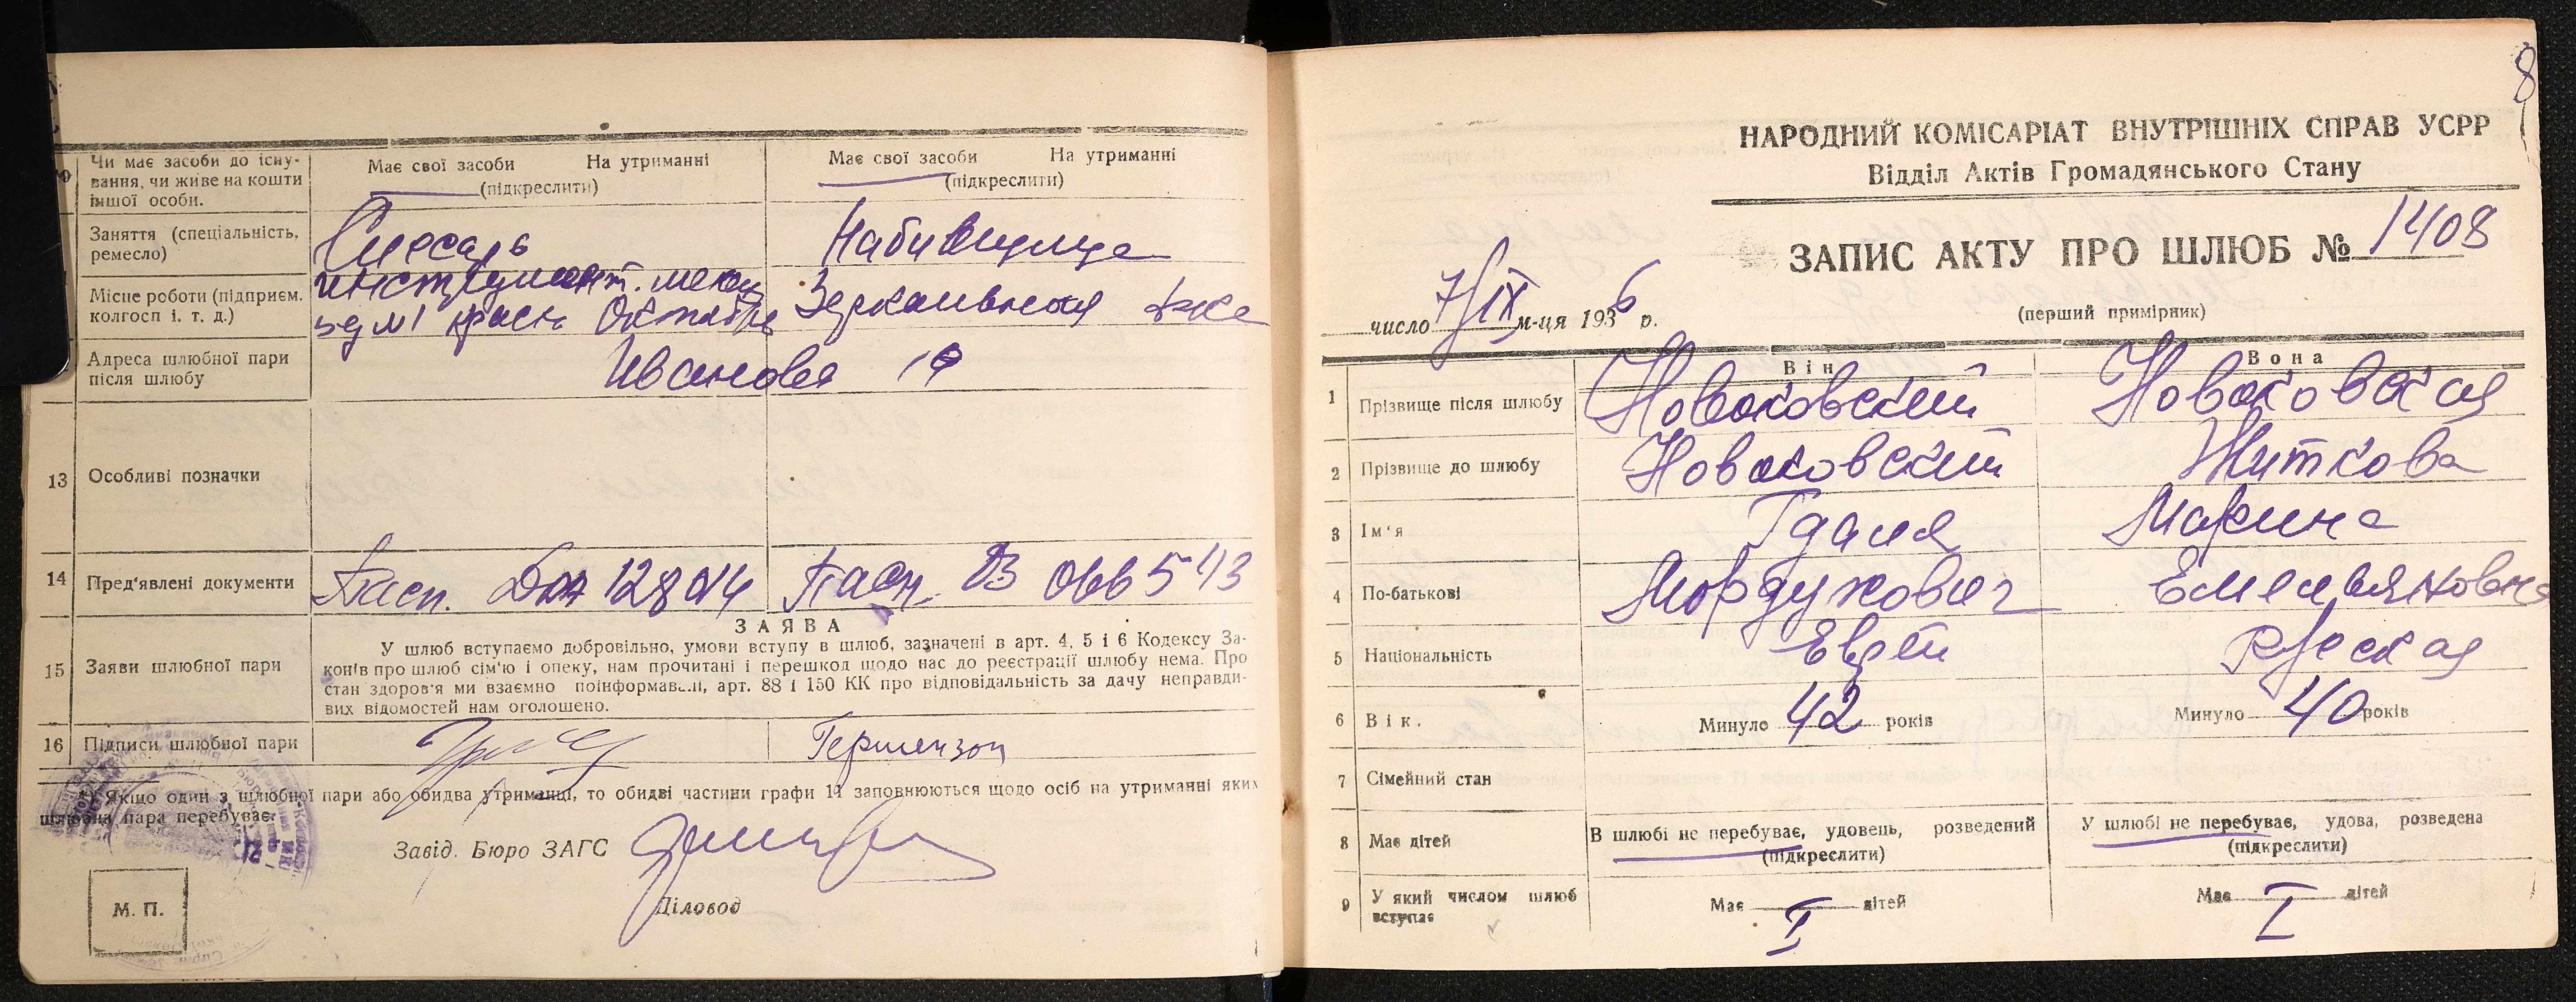 Чи має засоби до існу-
вання, чи живе на кошти
іншої особи.
Має свої засоби На утриманні
(підкреслити)
Має свої засоби На утриманні
(підкреслити)
Заняття (спеціальність,
ремесло)
Слесарь
Набивщица
Місце роботи (підприєм.
колгосп і. т. д.)
инструмент.
Красн Октября
Зеркальная
Адреса шлюбної пари
після шлюбу
Иванова 19
13 Особливі позначки
14 Пред'явлені документи
Пасп.
Пасп.
15 Заяви шлюбної пари
ЗАЯВА
У шлюб вступаємо добровільно, умови вступу в шлюб, зазначені в арт. 4, 5 і 6 Кодексу За-
конів про шлюб сім'ю і опеку, нам прочитані і перешкод щодо нас до реєстрації шлюбу нема. Про
стан здоров'я ми взаємно поінформавалі, арт. 88 і 150 КК про відповідальність за дачу неправди-
вих відомостей нам оголошено.
16 Підписи шлюбної пари
Гершензон
*) Якщо один з шлюбної пари або обидва утриманці, то обидві частини графи 11 заповнюються щодо осіб на утриманні яких
шлюбна пара перебуває.
Завід. Бюро ЗАГС
Діловод
М. П.
8
НАРОДНИЙ КОМІСАРІАТ ВНУТРІШНІХ СПРАВ УСРР
Відділ Актів Громадянського Стану
ЗАПИС АКТУ ПРО ШЛЮБ № 1408
(перший примірник)
число 7/IX м-ця 1936 р.
Він
Вона
1 Прізвище після шлюбу
Новаковский
Новаковская
2 Прізвище до шлюбу
Новаковский
Житкова
3 Ім'я
Гдаля
Марина
4 По-батькові
Мордухович
Емельяновна
5 Національність
Еврей
Русская
6 Вік.
Минуло 42 років
Минуло 40 років
7 Сімейний стан
8 Має дітей
В шлюбі не перебуває, удовець, розведений
(підкреслити)
У шлюбі не перебуває, удова, розведена
(підкреслити)
9 У який числом шлюб
вступає
Має I дітей
Має I дітей